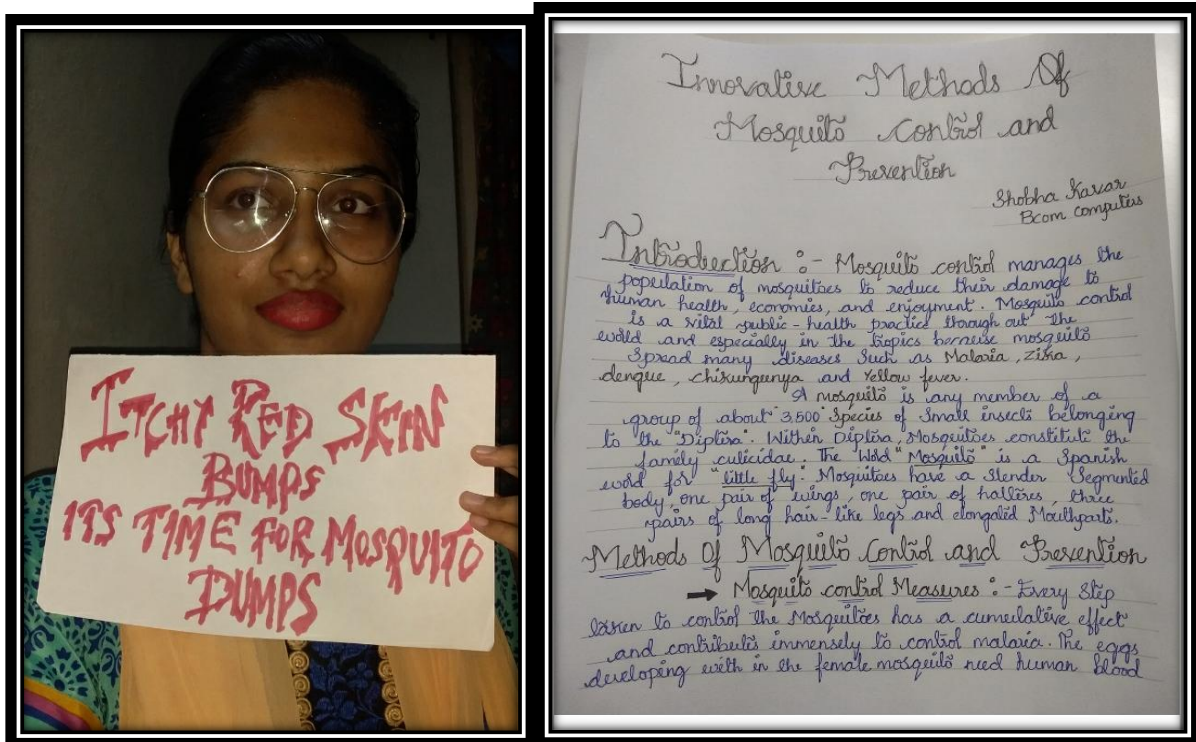 ITCHY RED SKIN
BUMPS
ITS TIME FOR MOSQUITO
DUMPS
Innovative Methods Of
Mosquito Control and
Prevention
Shobha Kavar
Bcom computers
Introduction :- Mosquito control manages the
population of mosquitoes to reduce their damage to
human health, economies, and enjoyment. Mosquito control
is a vital public-health practice through out the
world and especially in the tropics because mosquito
Spread many diseases Such as Malaria, Zika,
dengue, chikungunya and Yellow fever.
A mosquito is any member of a
group of about 3,500 Species of Small insects belonging
to the "Diptera". Within Diptera, Mosquitoes constitute the
family culicidae. The Word "Mosquito" is a Spanish
word for "little fly". Mosquitoes have a slender Segmented
body, one pair of wings, one pair of halteres, three
pairs of long hair-like legs and elongated Mouthparts.
Methods Of Mosquito Control and Prevention
→ Mosquito control Measures :- Every Step
taken to control the Mosquitoes has a cumulative effect
and contributes immensely to control malaria. The eggs
developing with in the female mosquito need human blood